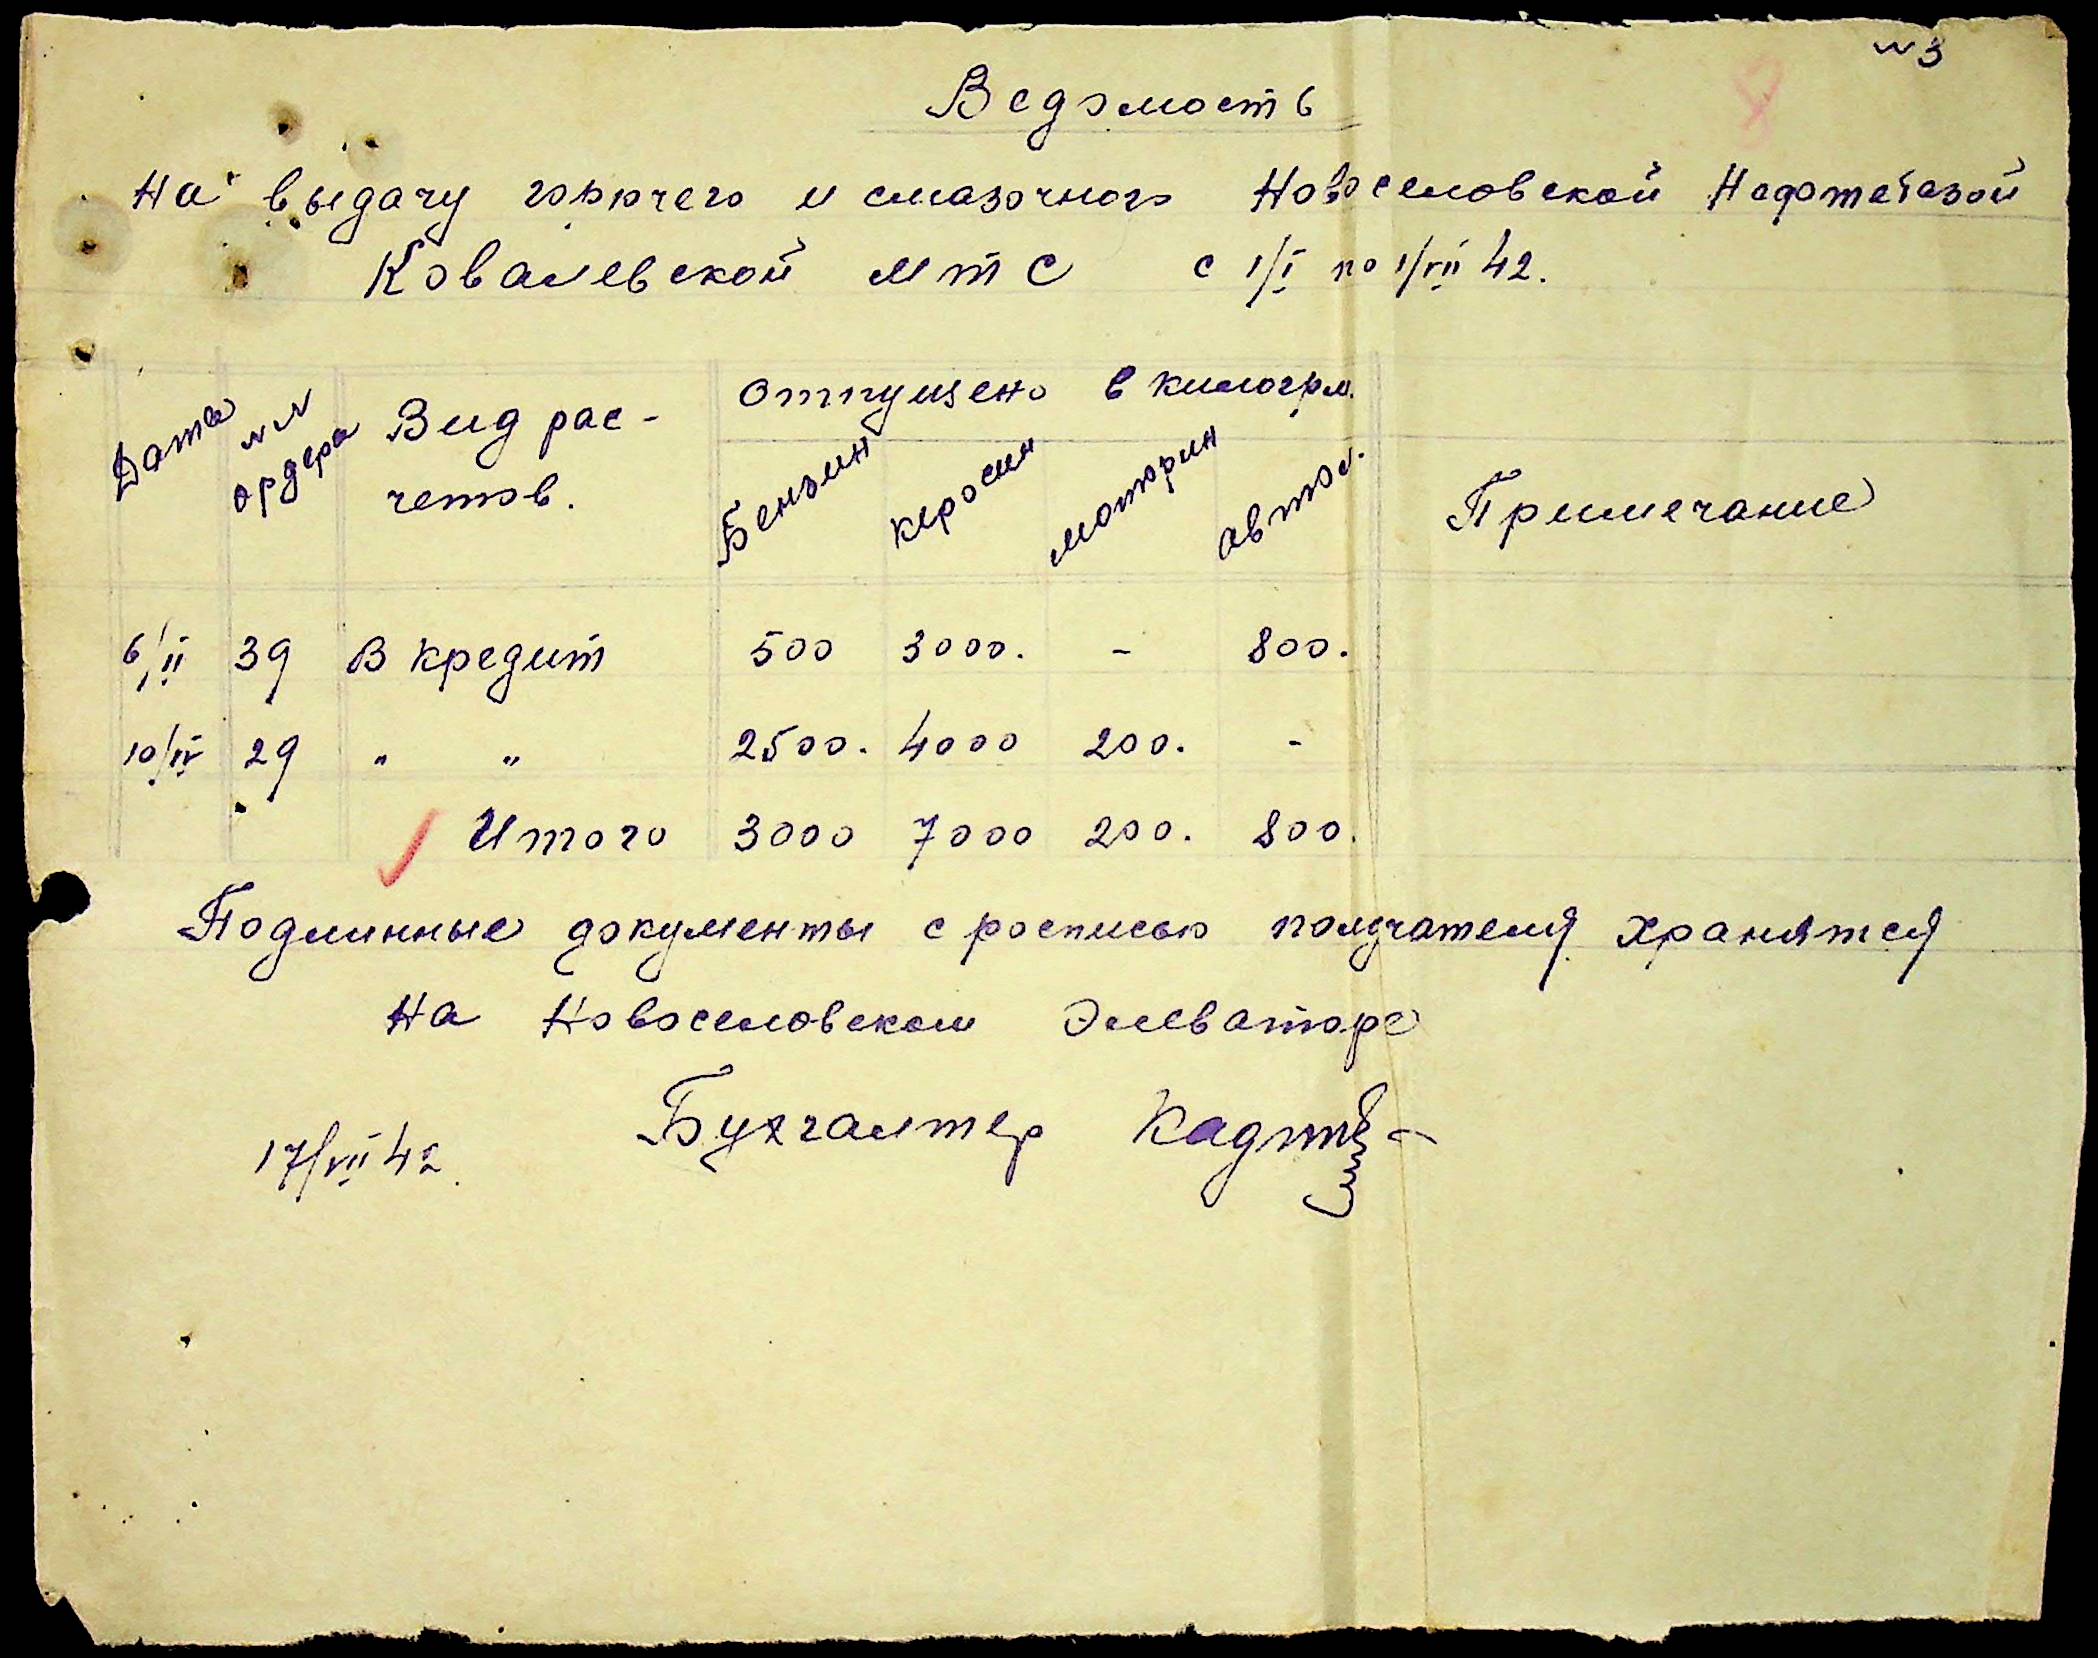 № 3
8
Ведомость
На выдачу горючего и смазочного Новоселовской Нефтебазой
Ковалевской МТС с 1/I по 1/VII 42.
Дата №№ ордера Вид расчетов. Отпущено в килогрм. Примечание
Бензин керосин моторин автол.
6/II 39 В кредит 500 3000. - 800.
10/IV 29 " " 2500. 4000 200. -
Итого 3000 7000 200. 800.
Подлинные документы с росписью получателя хранятся
на Новоселовском Элеваторе
17/VII 42. Бухгалтер